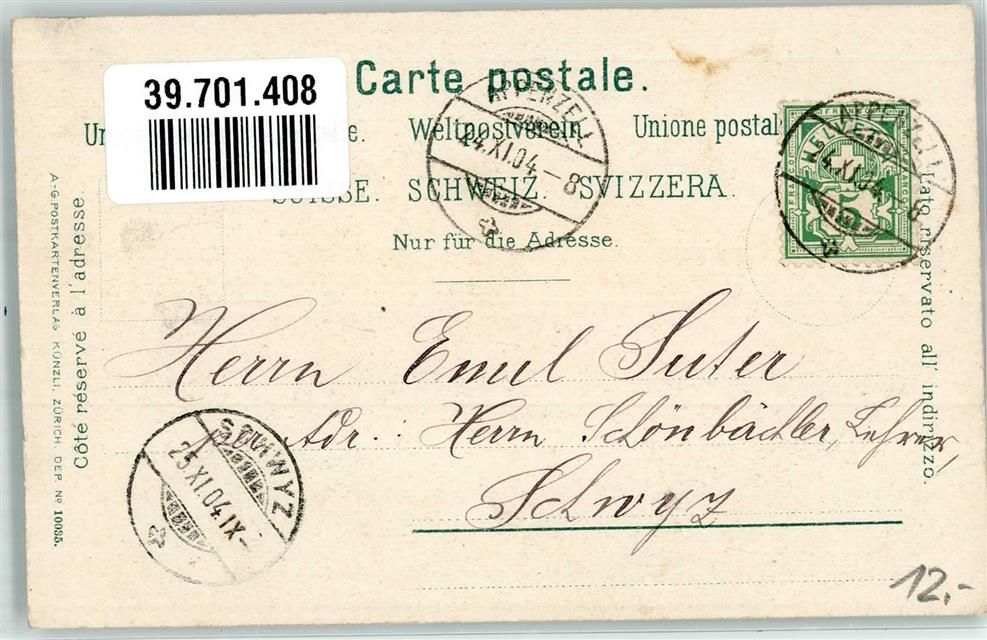 39.701.408
Carte postale.
Weltpostverein. Unione postal
SUISSE. SCHWEIZ. SVIZZERA.
Nur für die Adresse.
APPENZELL
24.XI.04.–8
APPENZELL
XI.04.–8
HELVETIA
FRANCO
5
Côté réservé à l'adresse.
A-G. POSTKARTENVERLAG KÜNZLI, ZÜRICH, DEP. Nº 10085.
Lato riservato all' indirizzo.
Herrn Emil Suter
Adr.: Herrn Schönbächler, Lehrer,
Schwyz
SCHWYZ
25.XI.04.IX–
12,-